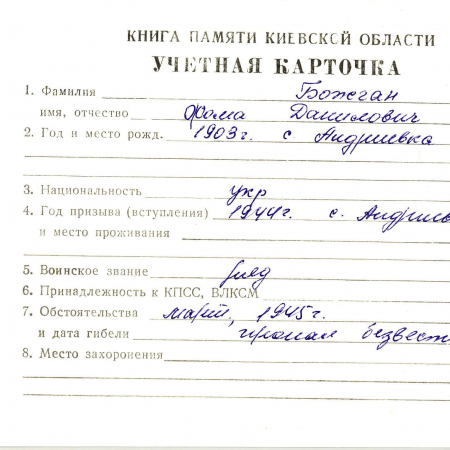 КНИГА ПАМЯТИ КИЕВСКОЙ ОБЛАСТИ
УЧЕТНАЯ КАРТОЧКА
1. Фамилия Божган
имя, отчество Фома Данилович
2. Год и место рожд. 1903г. с Андриевка
3. Национальность укр
4. Год призыва (вступления) 1944г. с. Андриев
и место проживания
5. Воинское звание ряд
6. Принадлежность к КПСС, ВЛКСМ
7. Обстоятельства март, 1945г.
и дата гибели пропал безвест
8. Место захоронения